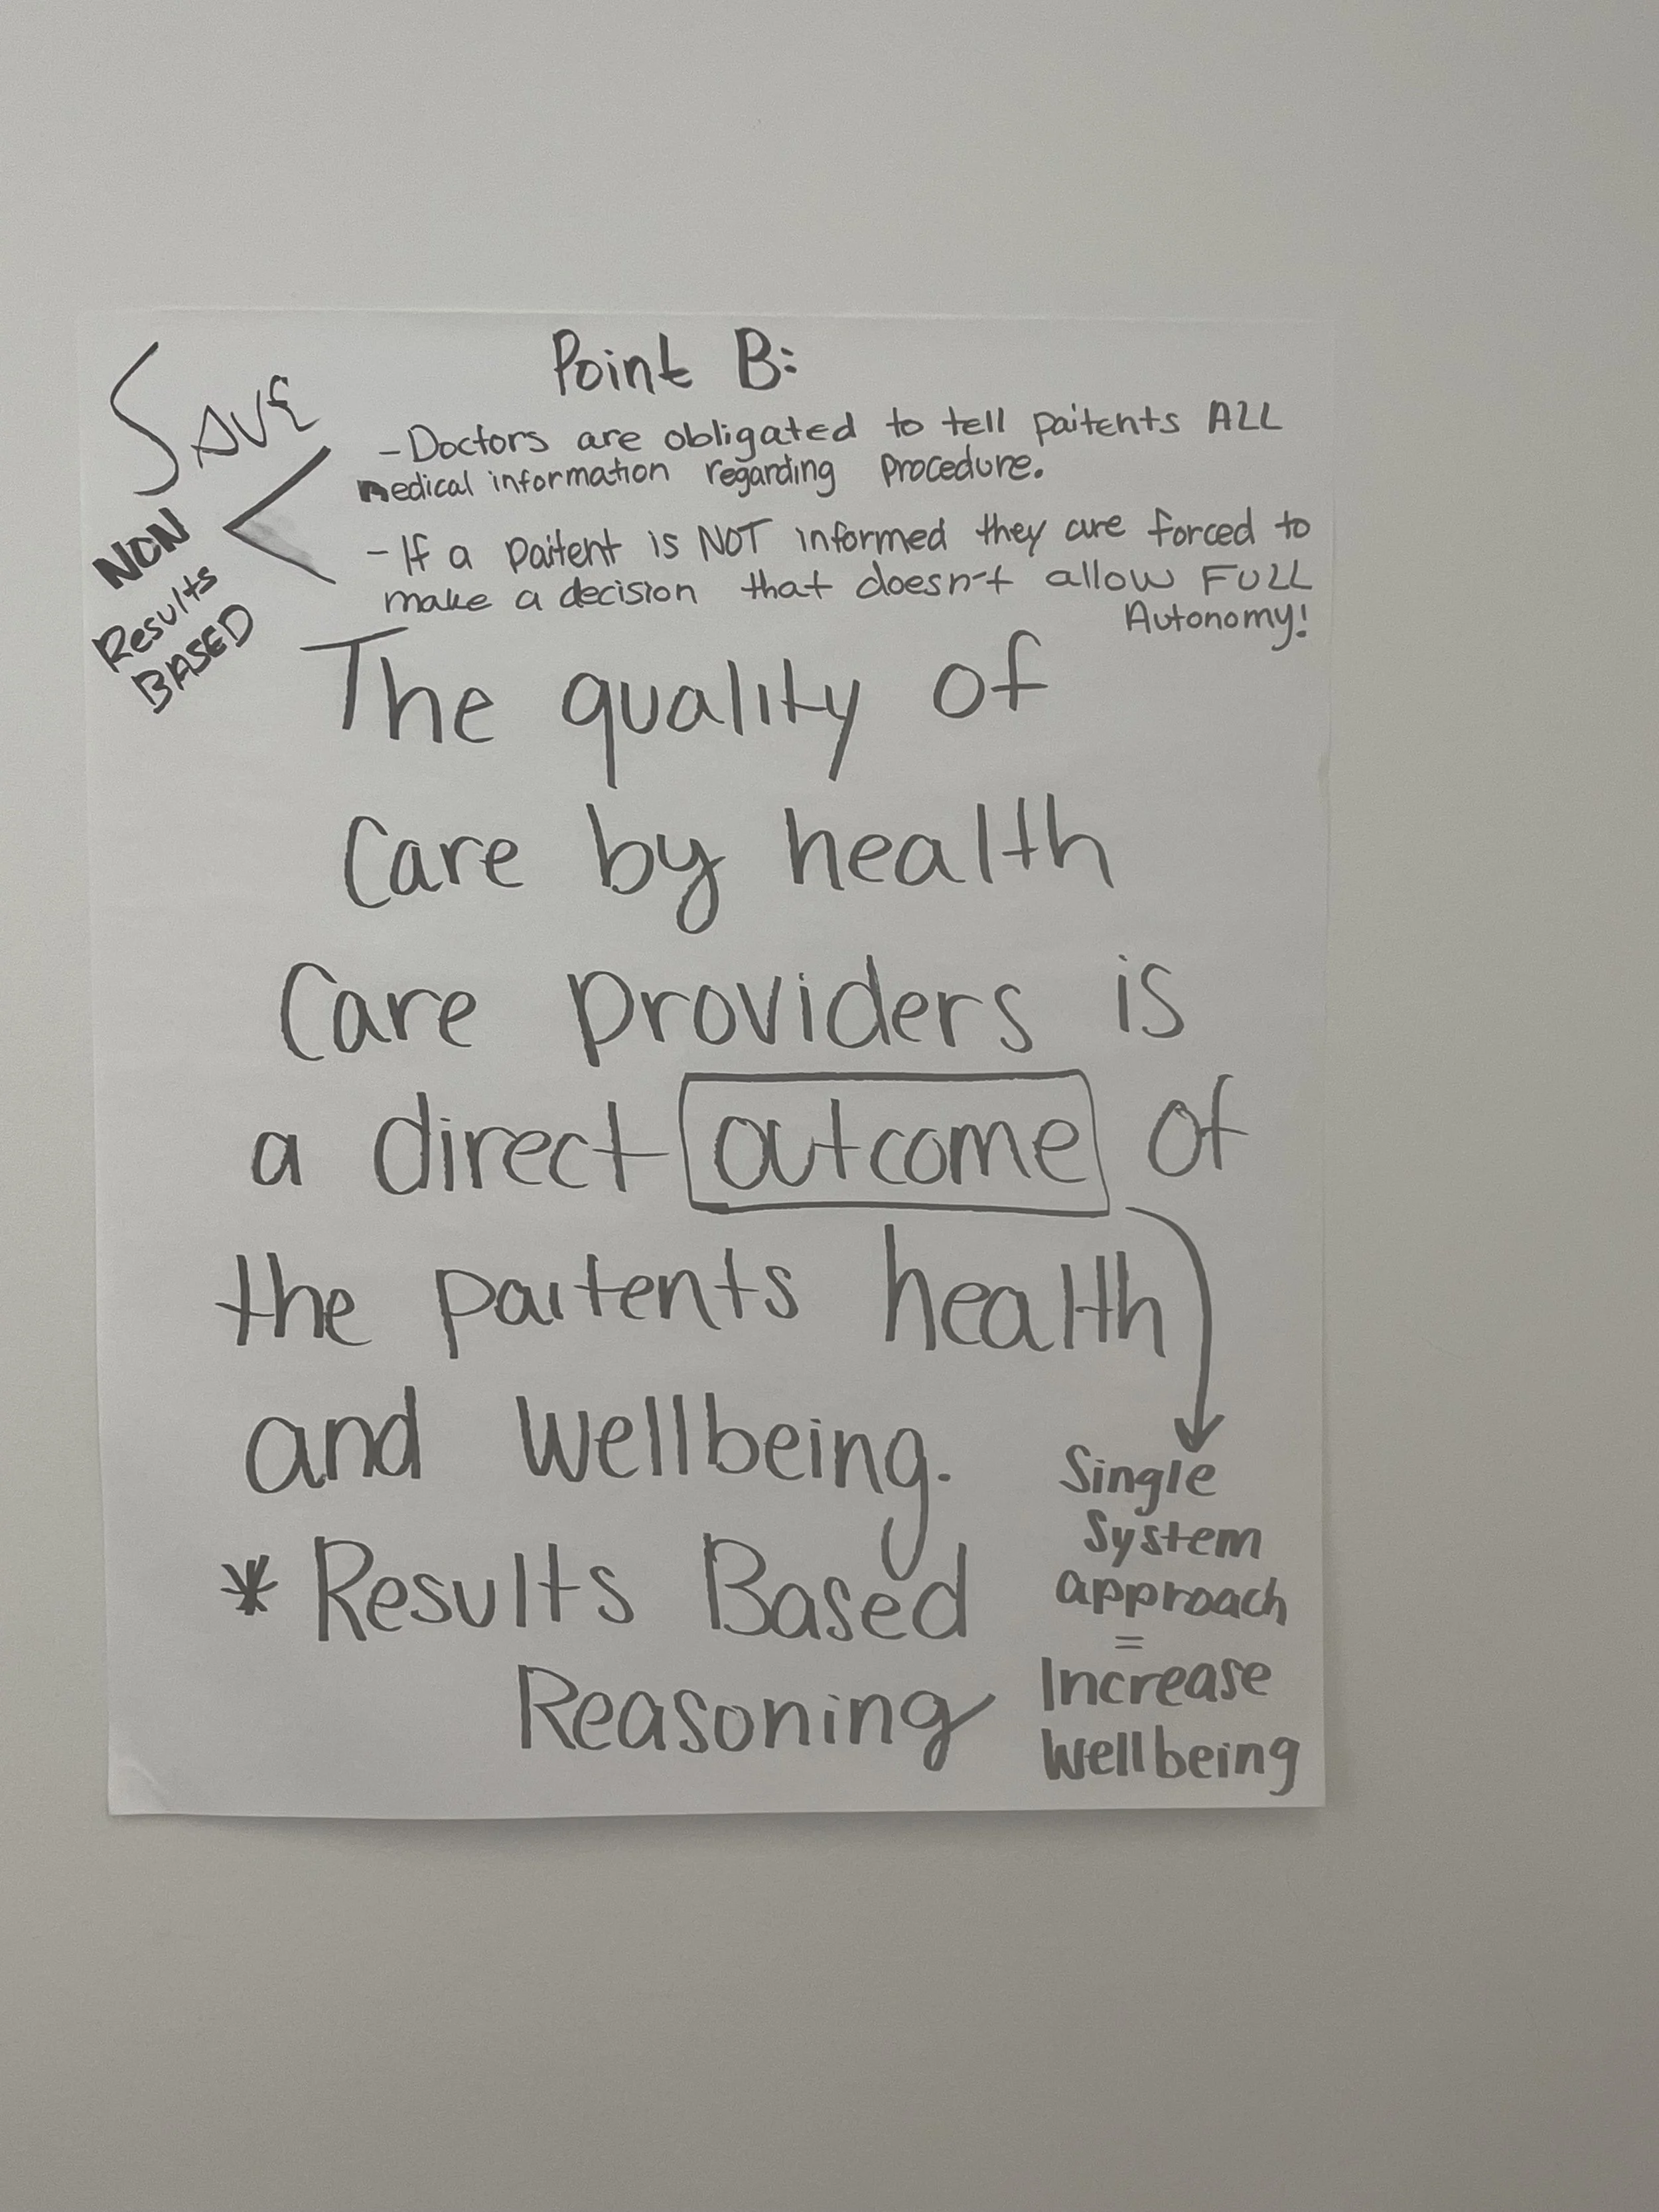 Point B:
SAVE
- Doctors are obligated to tell paitents ALL
medical information regarding procedure.
NON
Results
BASED
- If a paitent is NOT informed they are forced to
make a decision that doesn't allow FULL
Autonomy!
The quality of
Care by health
Care providers is
a direct outcome of
the paitents health
and wellbeing.
* Results Based
Reasoning
Single
System
approach
=
Increase
Wellbeing